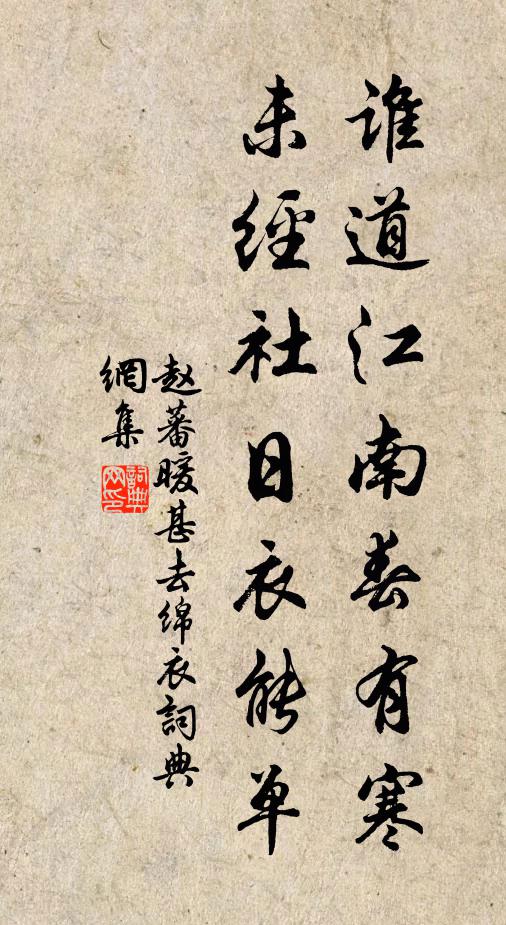 誰道江南春有寒
未經社日衣能单
赵蕃暖甚去綿衣詞典
網集
詞典
网印